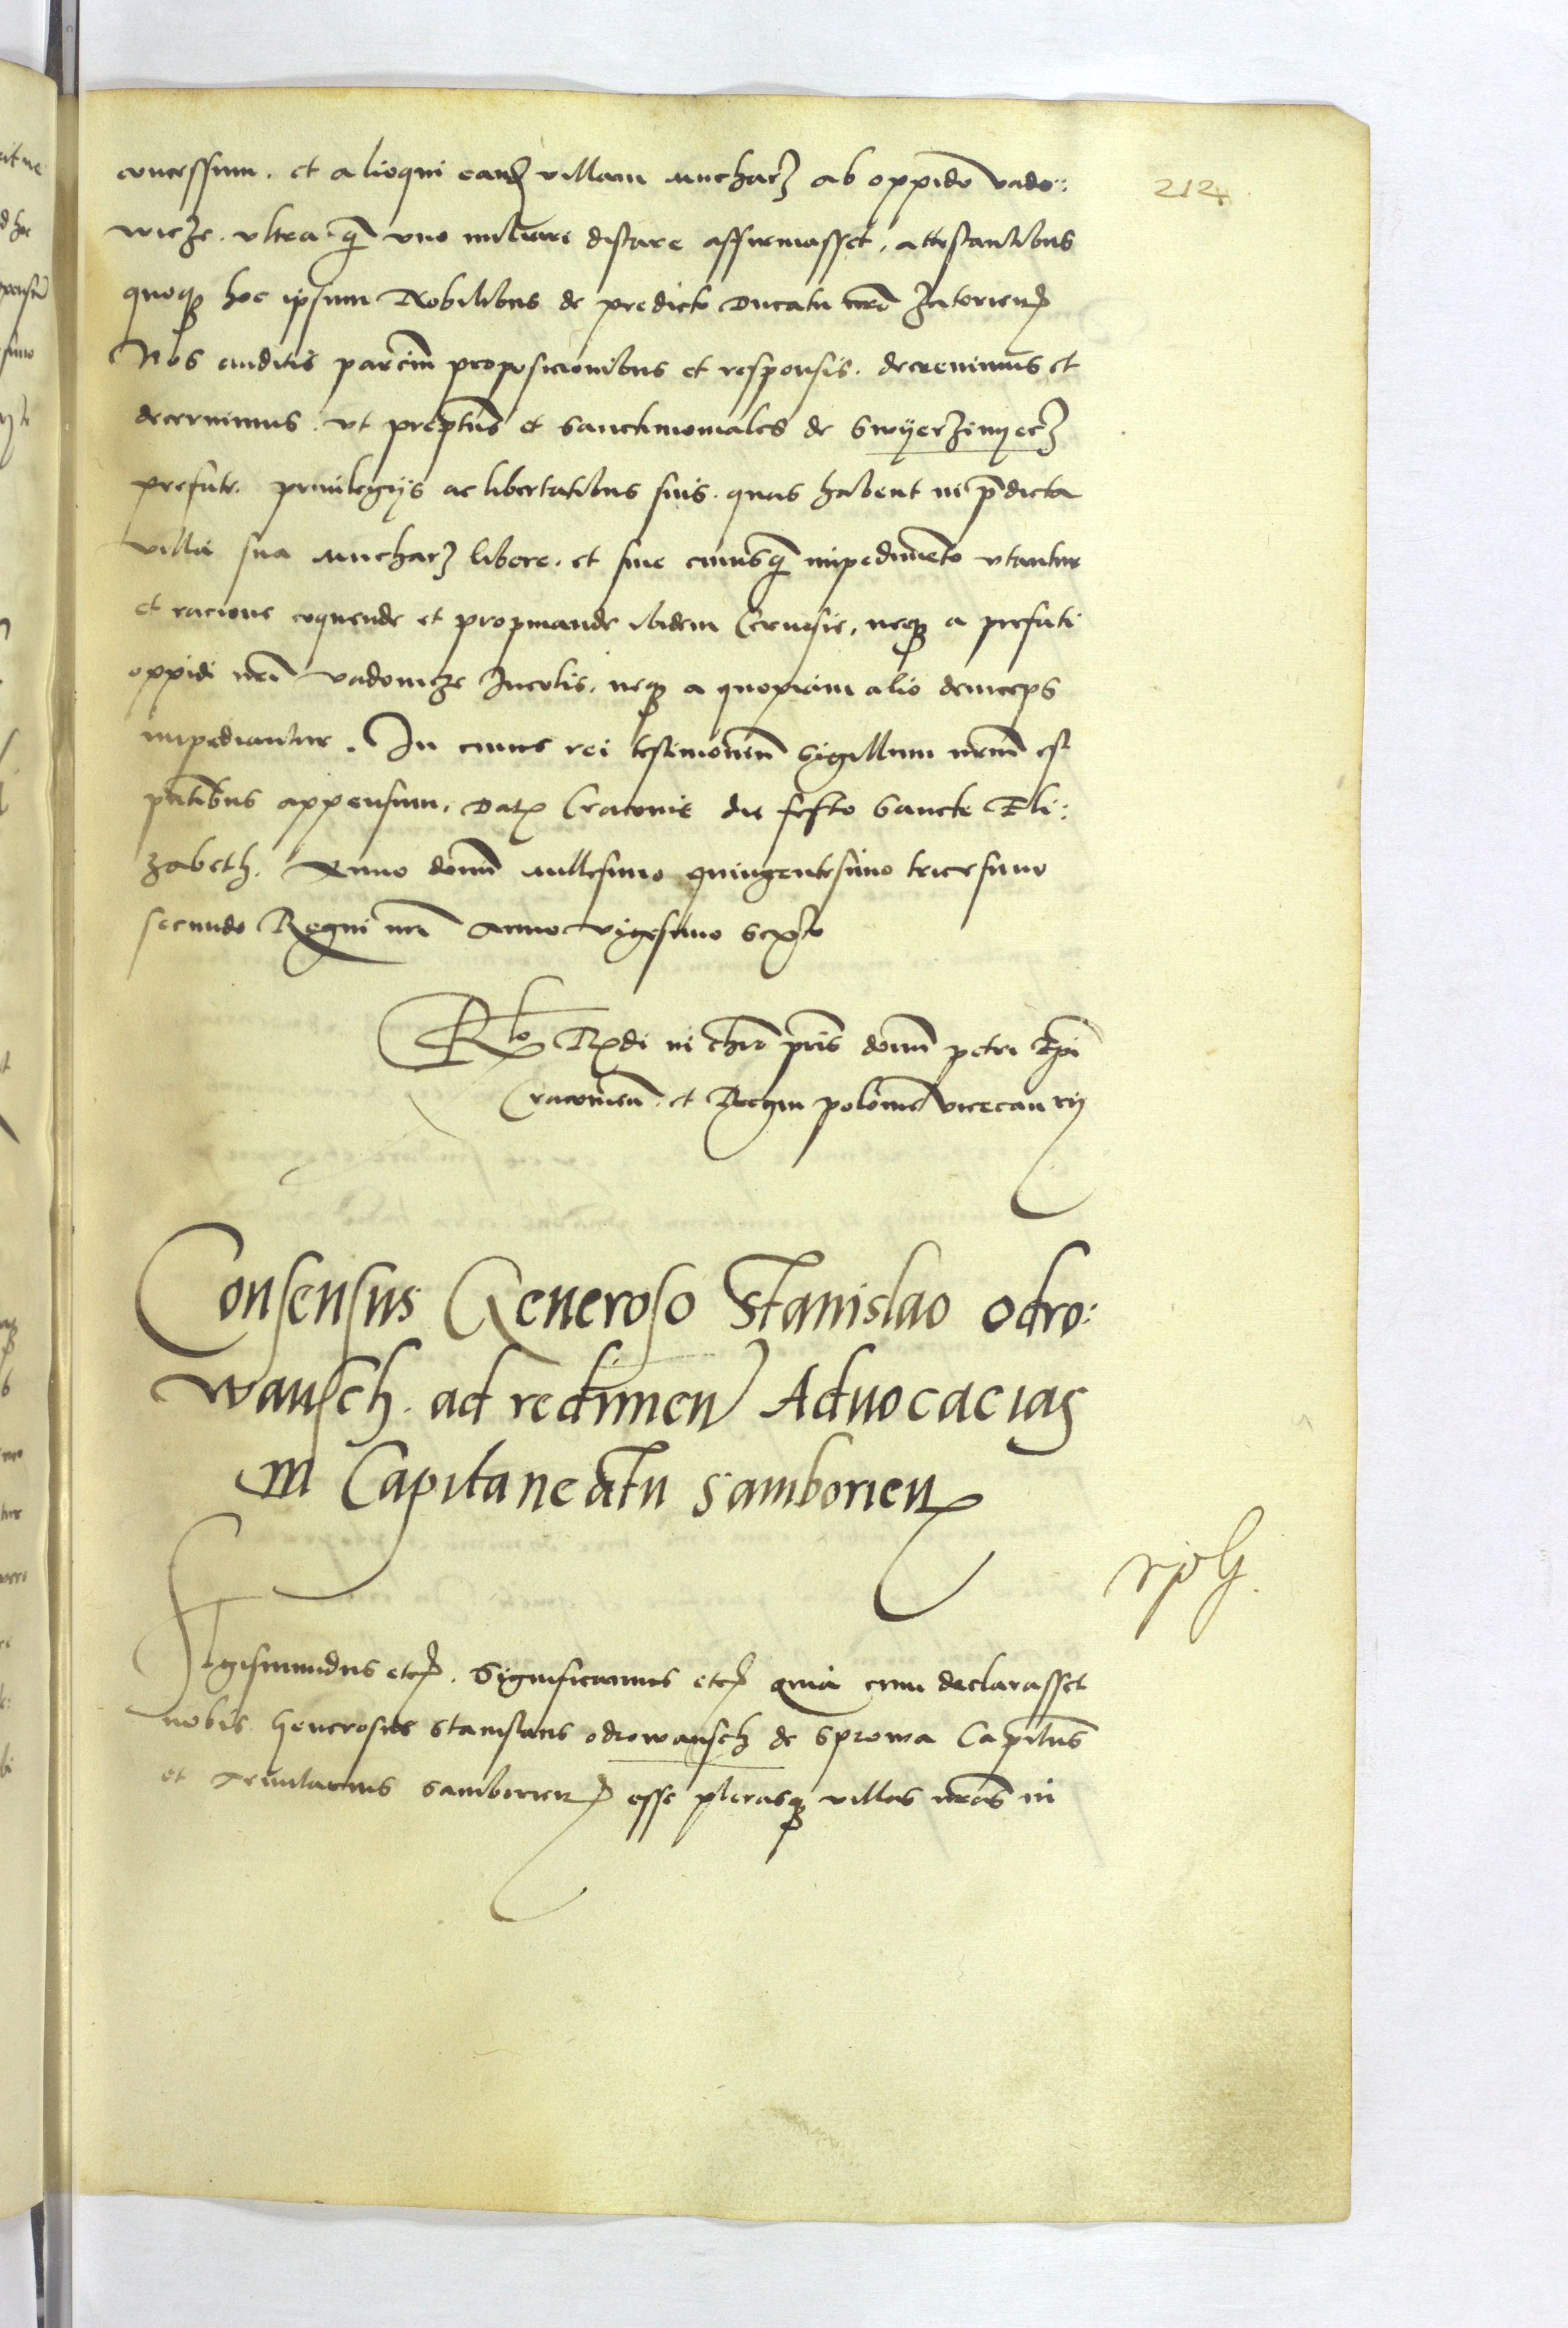 concessum. et alioqui eand villam Mucharz ab oppido vado:
212
wicze. ultra q̃ uno miliare distare affirmasset, attestantibus
quoq hoc ipsum Nobilibus de predicto Ducatu nr̃o Zatorien
Nos auditis parcim̃ proposicionibus et responsis. decrevimus et
decernimus. ut prep̃tus et Sanctimoniales de Swyerzinyecz
prefate. privilegijs ac libertatibus suis. quas habent in p̃dicta
villa sua Mucharz libere. et sine cuiusq̃ impedimẽto utantur
et racione coquende et propinande ibidem Cervisie, neq a prefati
oppidi nr̃i vadowicze Incolis, neq a quopiam alio deinceps
impediantur. In cuius rei testimoniũ Sigillum nr̃um est
pñtibus appensum. Dat Cracovie die festo Sancte Eli:
zabeth. Anno domĩ Millesimo quingentesimo tricesimo
secundo Regni nr̃i Anno vigesimo Sexto
Rlo Rndi in chr̃o pr̃is domĩ petri Ep̃i
Cracovieñ. et Regni poloniẽ vicecancrij
Consensus Generoso Stanislao odro:
wansch. ad redimen Advocacias
in Capitaneatu Samborien
Sigismundus etc. Significamus etc quia cum declarasset
nobis Generosus Stanislaus odrowansch de Sprowa Capit̃us
et Tenutarius Samborien esse plerasq villas nr̃as in